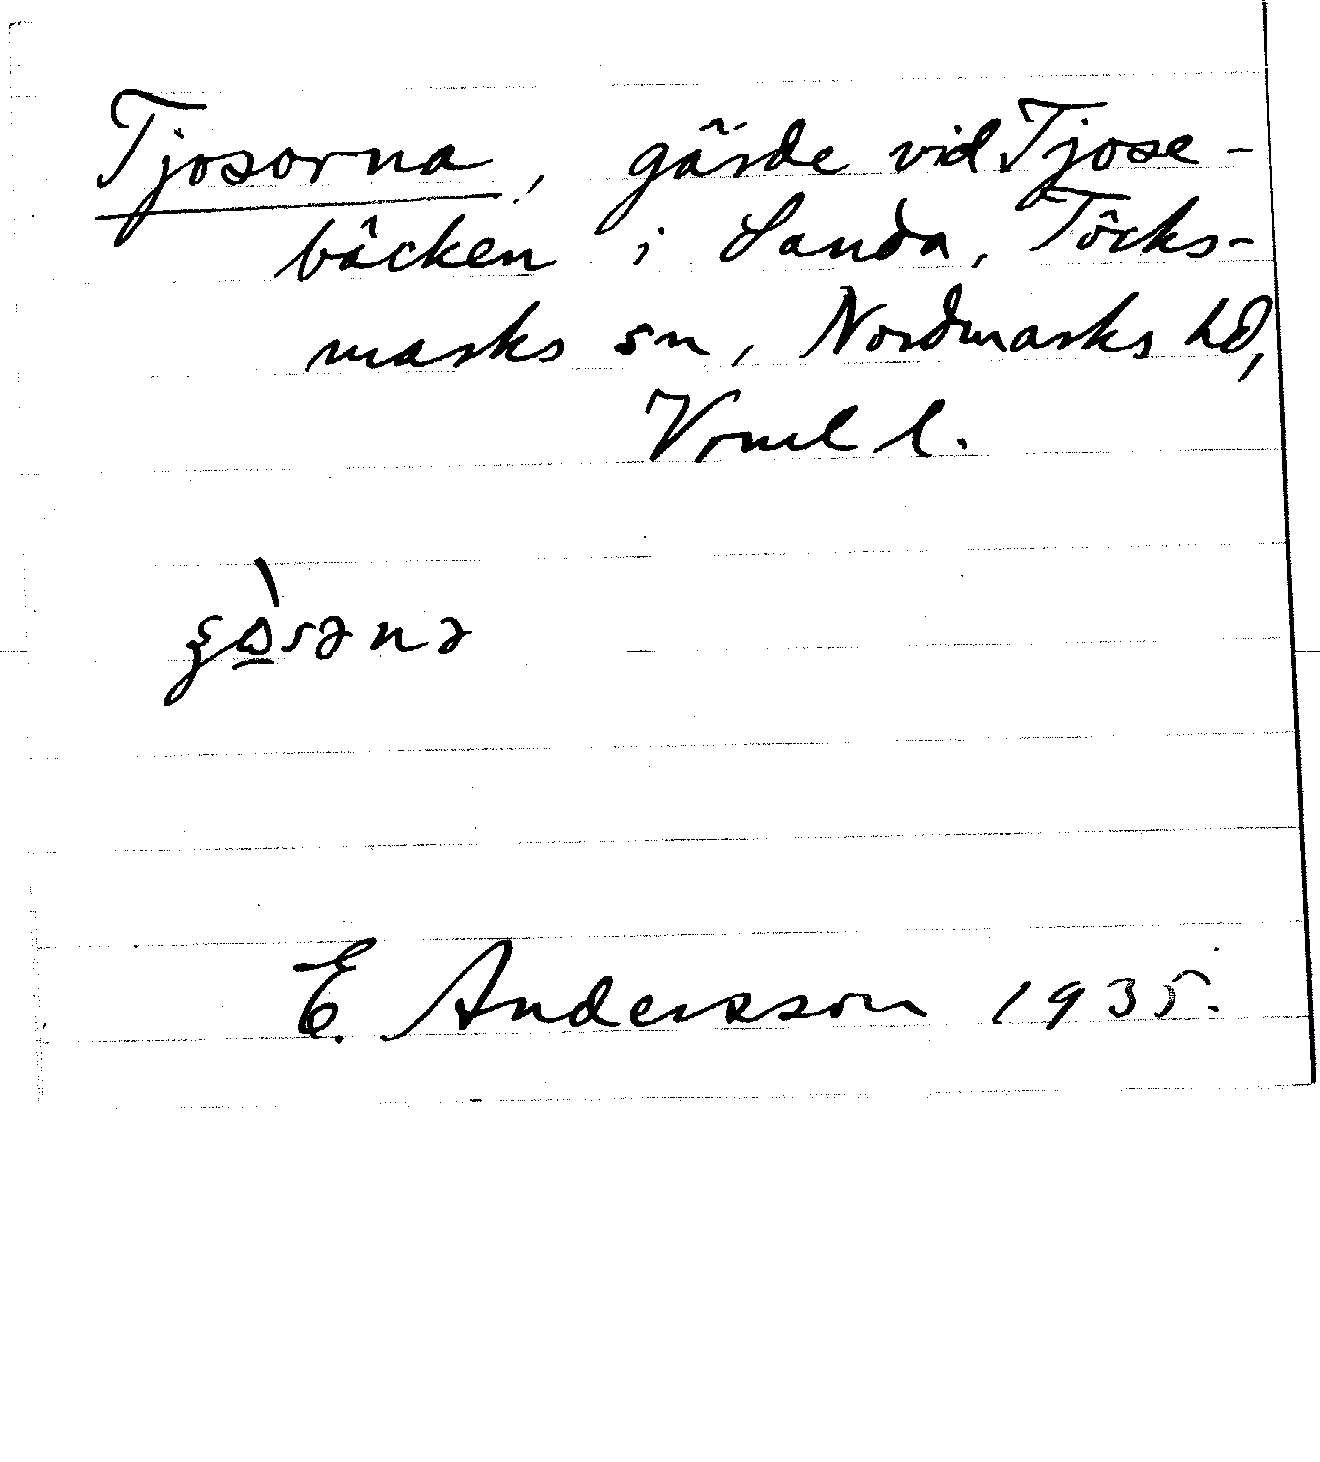 Tjosorna, gärde vid Tjose-
bäcken i Sanda, Töcks-
marks sn, Nordmarks hd,
Vrml l.
E. Andersson 1935.